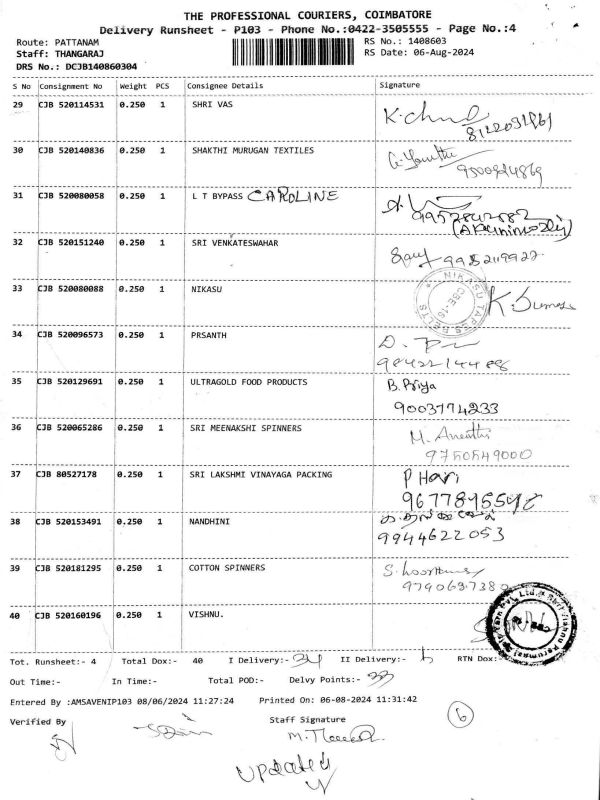 THE PROFESSIONAL COURIERS, COIMBATORE
Delivery Runsheet - P103 - Phone No.:0422-3505555 - Page No.:4
Route: PATTANAM RS No.: 1408603
Staff: THANGARAJ RS Date: 06-Aug-2024
DRS No.: DCJB140860304
S No Consignment No Weight PCS Consignee Details Signature
29 CJB 520114531 0.250 1 SHRI VAS
30 CJB 520140836 0.250 1 SHAKTHI MURUGAN TEXTILES
31 CJB 520080058 0.250 1 L T BYPASS CAROLINE
9952842882
32 CJB 520151240 0.250 1 SRI VENKATESWAHAR
33 CJB 520080088 0.250 1 NIKASU
NIKASU TAPES BELTS
34 CJB 520096573 0.250 1 PRSANTH
9842214488
35 CJB 520129691 0.250 1 ULTRAGOLD FOOD PRODUCTS B. Priya
9003774233
36 CJB 520065286 0.250 1 SRI MEENAKSHI SPINNERS
9750549000
37 CJB 80527178 0.250 1 SRI LAKSHMI VINAYAGA PACKING P Hari
38 CJB 520153491 0.250 1 NANDHINI
9944622053
39 CJB 520181295 0.250 1 COTTON SPINNERS
40 CJB 520160196 0.250 1 VISHNU.
Tot. Runsheet:- 4 Total Dox:- 40 I Delivery:- 34 II Delivery:- RTN Dox:-
Out Time:- In Time:- Total POD:- Delvy Points:- 33
Entered By :AMSAVENIP103 08/06/2024 11:27:24 Printed On: 06-08-2024 11:31:42
Verified By Staff Signature 6
updated